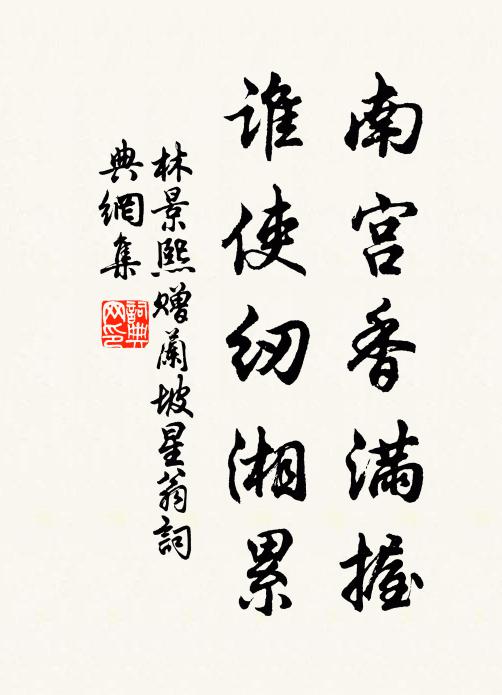 南宫香满握
谁使纫湘累
林景熙赠蘭坡星翁詞
典網集
詞典
网印